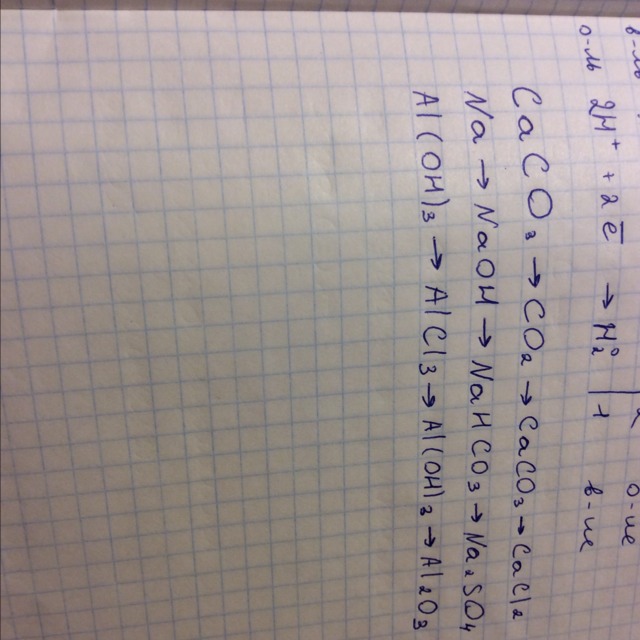 о-ль 2H⁺ + 2ē → H₂⁰ | 1 в-ие
CaCO₃ → CO₂ → CaCO₃ → CaCl₂
Na → NaOH → NaHCO₃ → Na₂SO₄
Al(OH)₃ → AlCl₃ → Al(OH)₃ → Al₂O₃